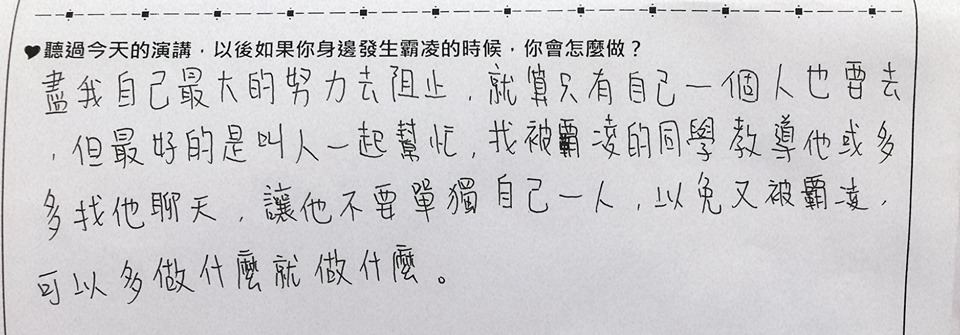 ♥聽過今天的演講，以後如果你身邊發生霸凌的時候，你會怎麼做？
盡我自己最大的努力去阻止，就算只有自己一個人也要去
，但最好的是叫人一起幫忙，找被霸凌的同學教導他或多
多找他聊天，讓他不要單獨自己一人，以免又被霸凌，
可以多做什麼就做什麼。